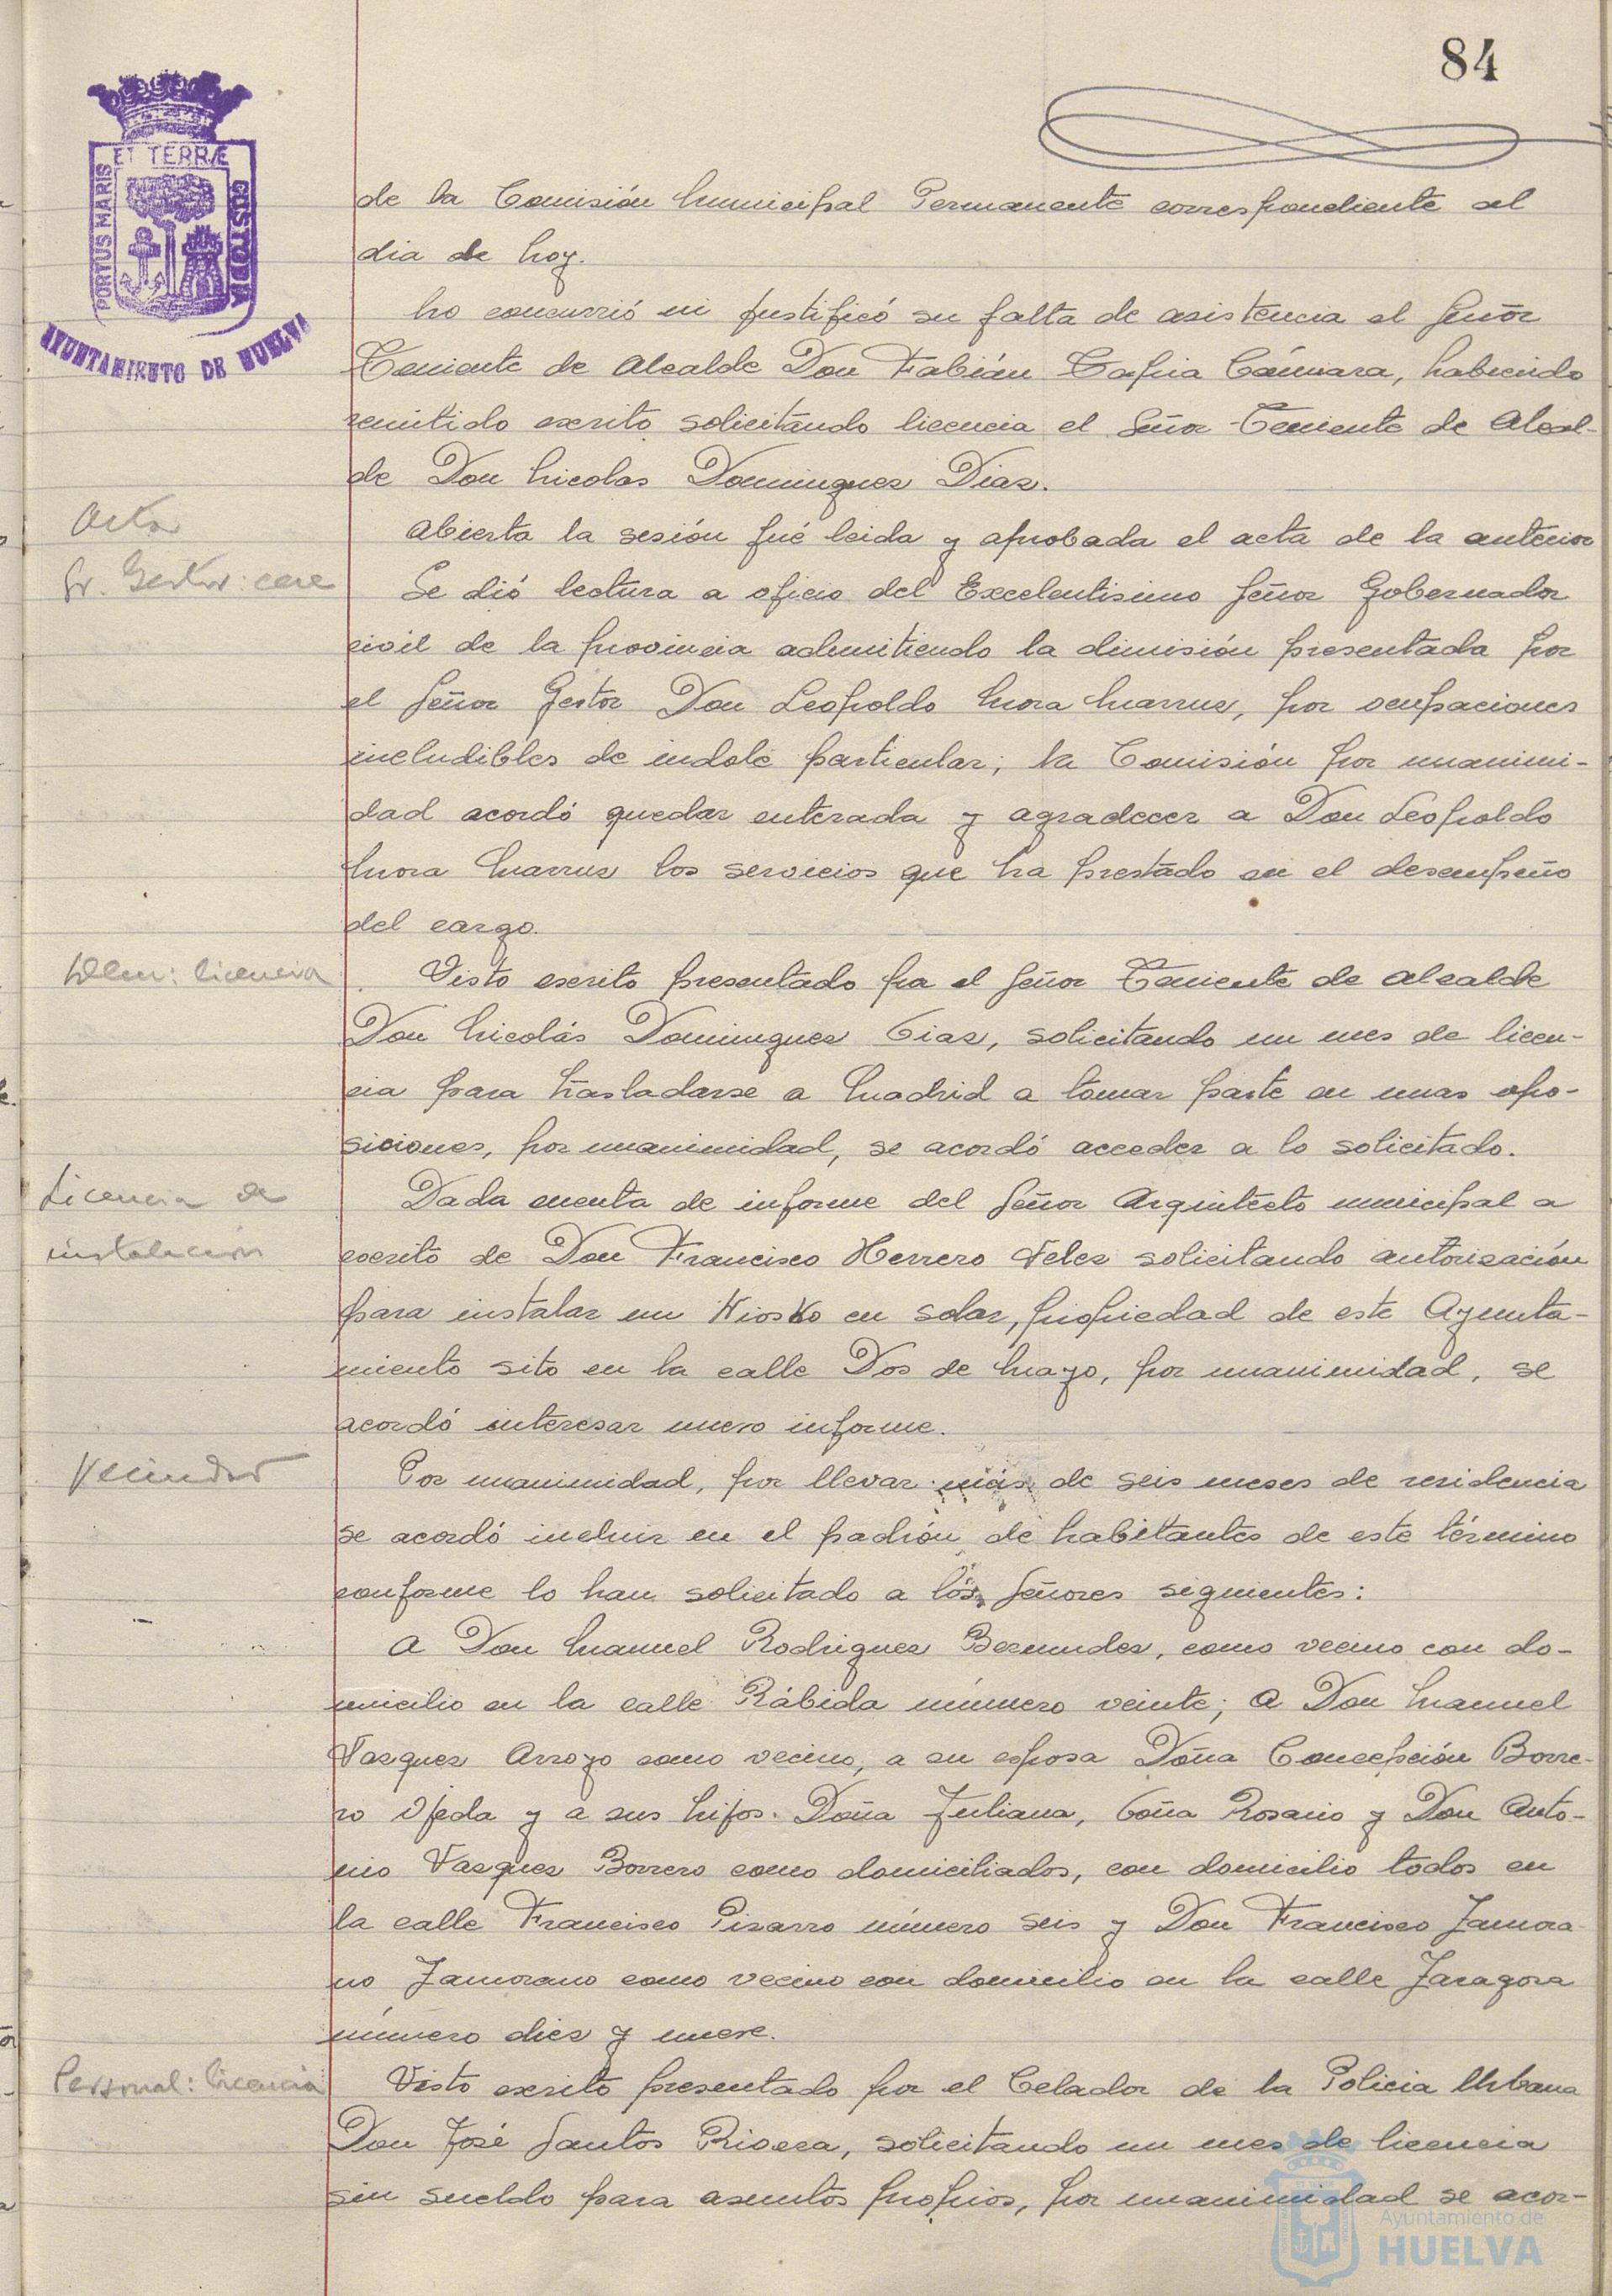 84
ET TERRÆ
PORTUS MARIS
CUSTODIA
AYUNTAMIENTO DE HUELVA
de la Comisión Municipal Permanente correspondiente al
dia de hoy.
No concurrió ni justificó su falta de asistencia el Señor
Teniente de Alcalde Don Fabián Tapia Cámara, habiendo
remitido escrito solicitando licencia el Señor Teniente de Alcal-
de Don Nicolas Dominguez Diaz.
Acta
Abierta la sesión fué leida y aprobada el acta de la anterior
Sr. Gestor: cese
Se dió lectura a oficio del Excelentisimo Señor Gobernador
civil de la provincia admitiendo la dimisión presentada por
el Señor Gestor Don Leopoldo Mora, por ocupaciones
ineludibles de indole particular; la Comisión por unanimi-
dad acordó quedar enterada y agradecer a Don Leopoldo
Mora los servicios que ha prestado en el desempeño
del cargo.
Idem: licencia
Visto escrito presentado por el Señor Teniente de Alcalde
Don Nicolás Dominguez Diaz, solicitando un mes de licen-
cia para trasladarse a Madrid a tomar parte en unas opo-
siciones, por unanimidad, se acordó acceder a lo solicitado.
Licencia de
instalación
Dada cuenta de informe del Señor Arquitecto municipal a
escrito de Don Francisco Herrero Velez solicitando autorización
para instalar un Kiosko en solar, propiedad de este Ayunta-
miento sito en la calle Dos de Mayo, por unanimidad, se
acordó interesar nuevo informe.
Vecindad
Por unanimidad, por llevar más de seis meses de residencia
se acordó incluir en el padrón de habitantes de este término
conforme lo han solicitado a los Señores siguientes:
A Don Manuel Rodriguez Bermudez, como vecino con do-
micilio en la calle Rábida número veinte; a Don Manuel
Vazquez Arroyo como vecino, a su esposa Doña Concepción Borre-
ro Ojeda y a sus hijos. Doña Juliana, Doña Rosario y Don Anto-
nio Vazquez Borrero como domiciliados, con domicilio todos en
la calle Francisco Pizarro número seis y Don Francisco Zamora-
no Zamorano como vecino con domicilio en la calle Zaragoza
número diez y nueve.
Personal: licencia
Visto escrito presentado por el Celador de la Policia Urbana
Don José Santos Rivera, solicitando un mes de licencia
sin sueldo para asuntos propios, por unanimidad se acor-
Ayuntamiento de
HUELVA